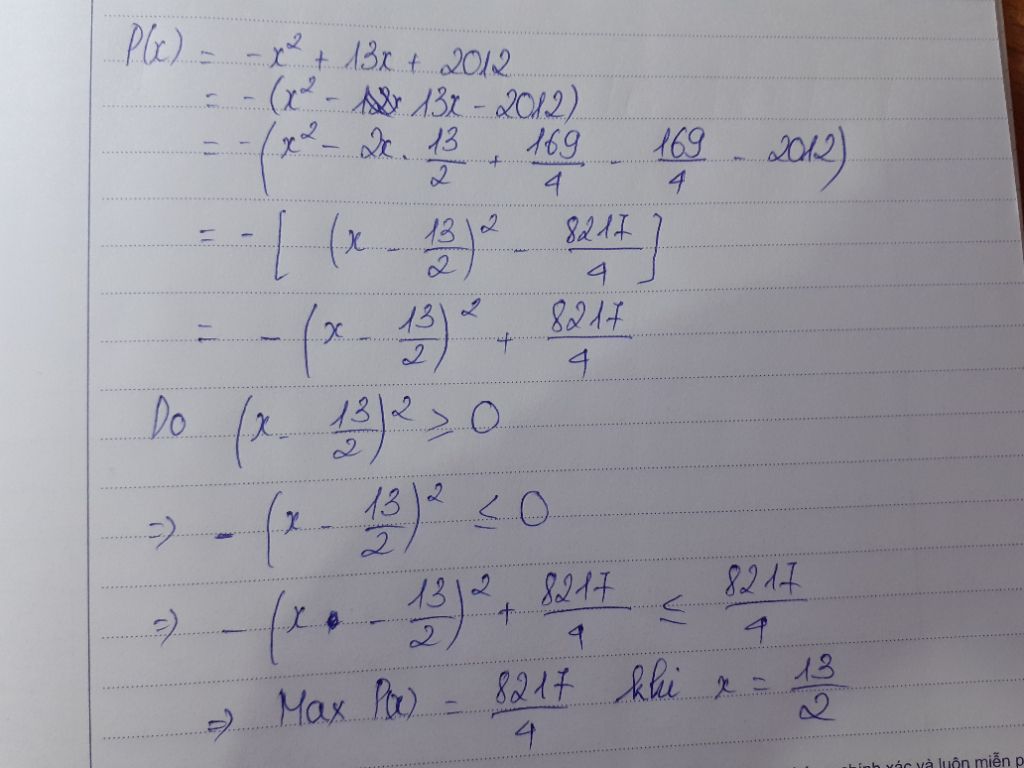 P(x) = -x² + 13x + 2012
= -(x² - 13x - 2012)
= -(x² - 2x. 13/2 + 169/4 - 169/4 - 2012)
= -[(x - 13/2)² - 8217/4]
= -(x - 13/2)² + 8217/4
Do (x - 13/2)² ≥ 0
=> -(x - 13/2)² ≤ 0
=> -(x - 13/2)² + 8217/4 ≤ 8217/4
=> Max P(x) = 8217/4 khi x = 13/2
chính xác và luôn miễn p